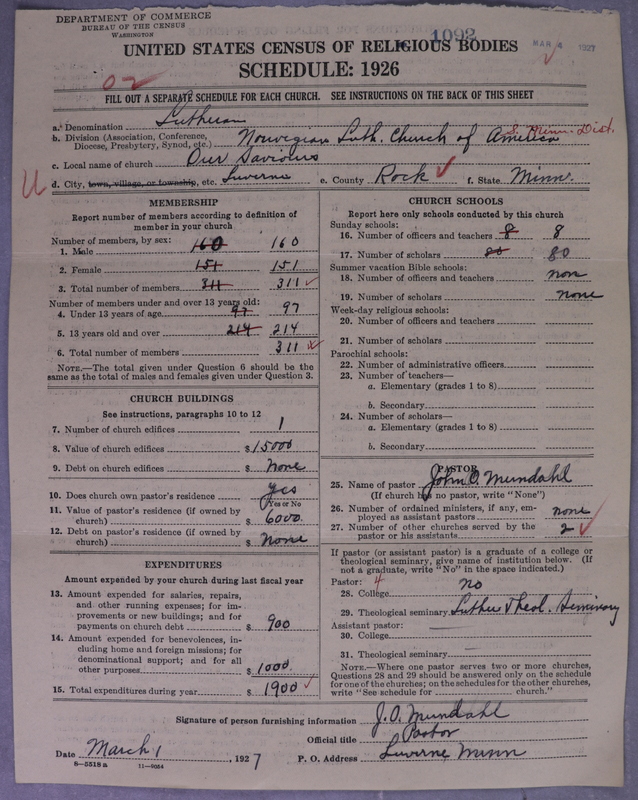 DEPARTMENT OF COMMERCE
BUREAU OF THE CENSUS
WASHINGTON
1092
MAR 4 1927
UNITED STATES CENSUS OF RELIGIOUS BODIES
SCHEDULE: 1926
02
FILL OUT A SEPARATE SCHEDULE FOR EACH CHURCH. SEE INSTRUCTIONS ON THE BACK OF THIS SHEET
a. Denomination Lutheran
b. Division (Association, Conference, Diocese, Presbytery, Synod, etc.) Norwegian Luth. Church of America S. Minn. Dist.
c. Local name of church Our Saviours
d. City, town, village, or township, etc. Luverne e. County Rock f. State Minn.
MEMBERSHIP
Report number of members according to definition of
member in your church
Number of members, by sex:
1. Male 160 160
2. Female 151 151
3. Total number of members 311 311
Number of members under and over 13 years old:
4. Under 13 years of age 97 97
5. 13 years old and over 214 214
6. Total number of members 311
NOTE.—The total given under Question 6 should be
same as the total of males and females given under Question 3.
CHURCH BUILDINGS
See instructions, paragraphs 10 to 12
7. Number of church edifices 1
8. Value of church edifices $15000
9. Debt on church edifices $ None
10. Does church own pastor's residence yes
(Yes or No)
11. Value of pastor's residence (if owned by
church) $ 6000.
12. Debt on pastor's residence (if owned by
church) $ None
EXPENDITURES
Amount expended by your church during last fiscal year
13. Amount expended for salaries, repairs,
and other running expenses; for im-
provements or new buildings; and for
payments on church debt $ 900
14. Amount expended for benevolences, in-
cluding home and foreign missions; for
denominational support; and for all
other purposes $ 1000.
15. Total expenditures during year $ 1900
CHURCH SCHOOLS
Report here only schools conducted by this church
Sunday schools:
16. Number of officers and teachers 8 8
17. Number of scholars 80 80
Summer vacation Bible schools:
18. Number of officers and teachers none
19. Number of scholars none
Week-day religious schools:
20. Number of officers and teachers
21. Number of scholars
Parochial schools:
22. Number of administrative officers
23. Number of teachers—
a. Elementary (grades 1 to 8)
b. Secondary
24. Number of scholars—
a. Elementary (grades 1 to 8)
b. Secondary
PASTOR
25. Name of pastor John O. Mundahl
(If church has no pastor, write "None")
26. Number of ordained ministers, if any, em-
ployed as assistant pastors none
27. Number of other churches served by the
pastor or his assistants 2
If pastor (or assistant pastor) is a graduate of a college or
theological seminary, give name of institution below. (If
not a graduate, write "No" in the space indicated.)
Pastor: 4
28. College no
29. Theological seminary Luther Theol. Seminary
Assistant pastor:
30. College
31. Theological seminary
NOTE.—Where one pastor serves two or more churches,
Questions 28 and 29 should be answered only on the schedule
for one of the churches; on the schedules for the other churches,
write "See schedule for church."
Signature of person furnishing information J. O. Mundahl
Official title Pastor
Date March 1, 1927 P. O. Address Luverne Minn
8-5518 a 11-9054